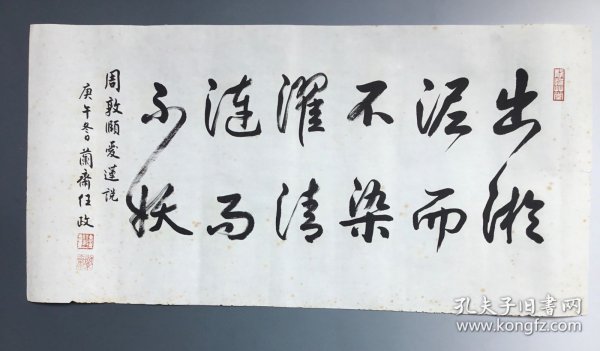 出淤
泥而
不染
濯清
漣而
不妖
周敦頤愛蓮説
庚午冬日蘭齋任政
孔夫子旧书网
www.kongfz.com